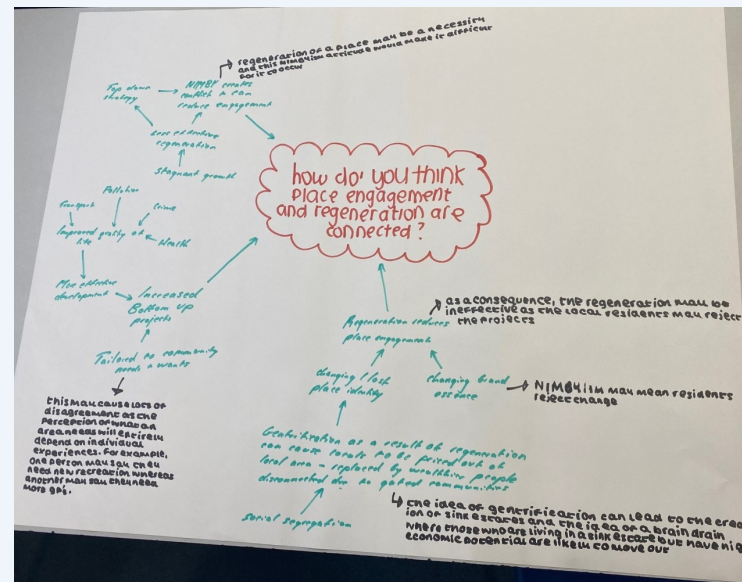 regeneration of a place may be a necessity
and this NIMBYism attitude would make it difficult
for it to occur
Top down
strategy
NIMBY creates
conflict & can
reduce engagement
Less effective
regeneration
Stagnant growth
how do you think
place engagement
and regeneration are
connected?
Pollution
Transport
Crime
Improved quality of
life
Health
More effective
development
Increased
Bottom up
projects
Tailored to community
needs & wants
this may cause lots of
disagreement as the
perception of what an
area needs will entirely
depend on individual
experiences. For example,
one person may say they
need new recreation whereas
another may say they need
more GPs.
as a consequence, the regeneration may be
ineffective as the local residents may reject
the projects
Regeneration reduces
place engagement
changing / lost
place identity
changing brand
essence
NIMBYism may mean residents
reject change
Gentrification as a result of regeneration
can cause locals to be priced out of
local area - replaced by wealthier people
disconnected due to gated communities
social segregation
the idea of gentrification can lead to the creat
ion of sink estates and the idea of a brain drain
where those who are living in a sink estate but have hig
economic potential are likely to move out